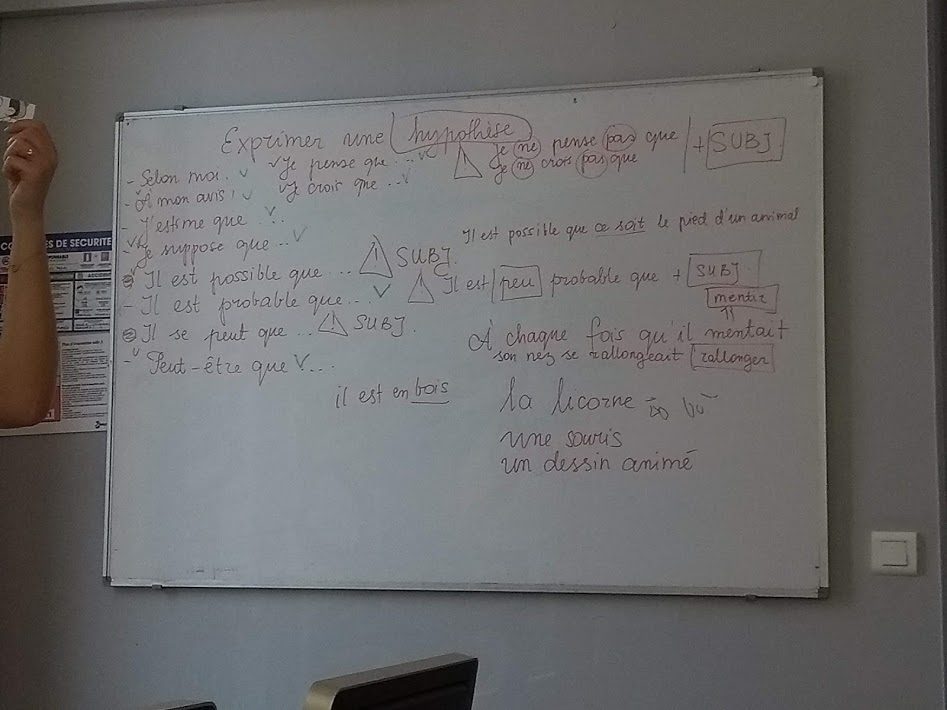 Exprimer une hypothèse
- Selon moi. v v Je pense que ... v
- À mon avis! v v Je crois que ... v
- J'estime que v ...
v Je suppose que ... v
Il est possible que ... ! SUBJ.
- Il est probable que ... v
Il se peut que ... ! SUBJ.
- v Peut-être que v ...
! Je ne pense pas que
Je ne crois pas que
+ SUBJ.
Il est possible que ce soit le pied d'un animal
! Il est peu probable que + SUBJ.
mentir
À chaque fois qu'il mentait
son nez se rallongeait rallonger
il est en bois
la licorne
une souris
un dessin animé
DE SECURITE